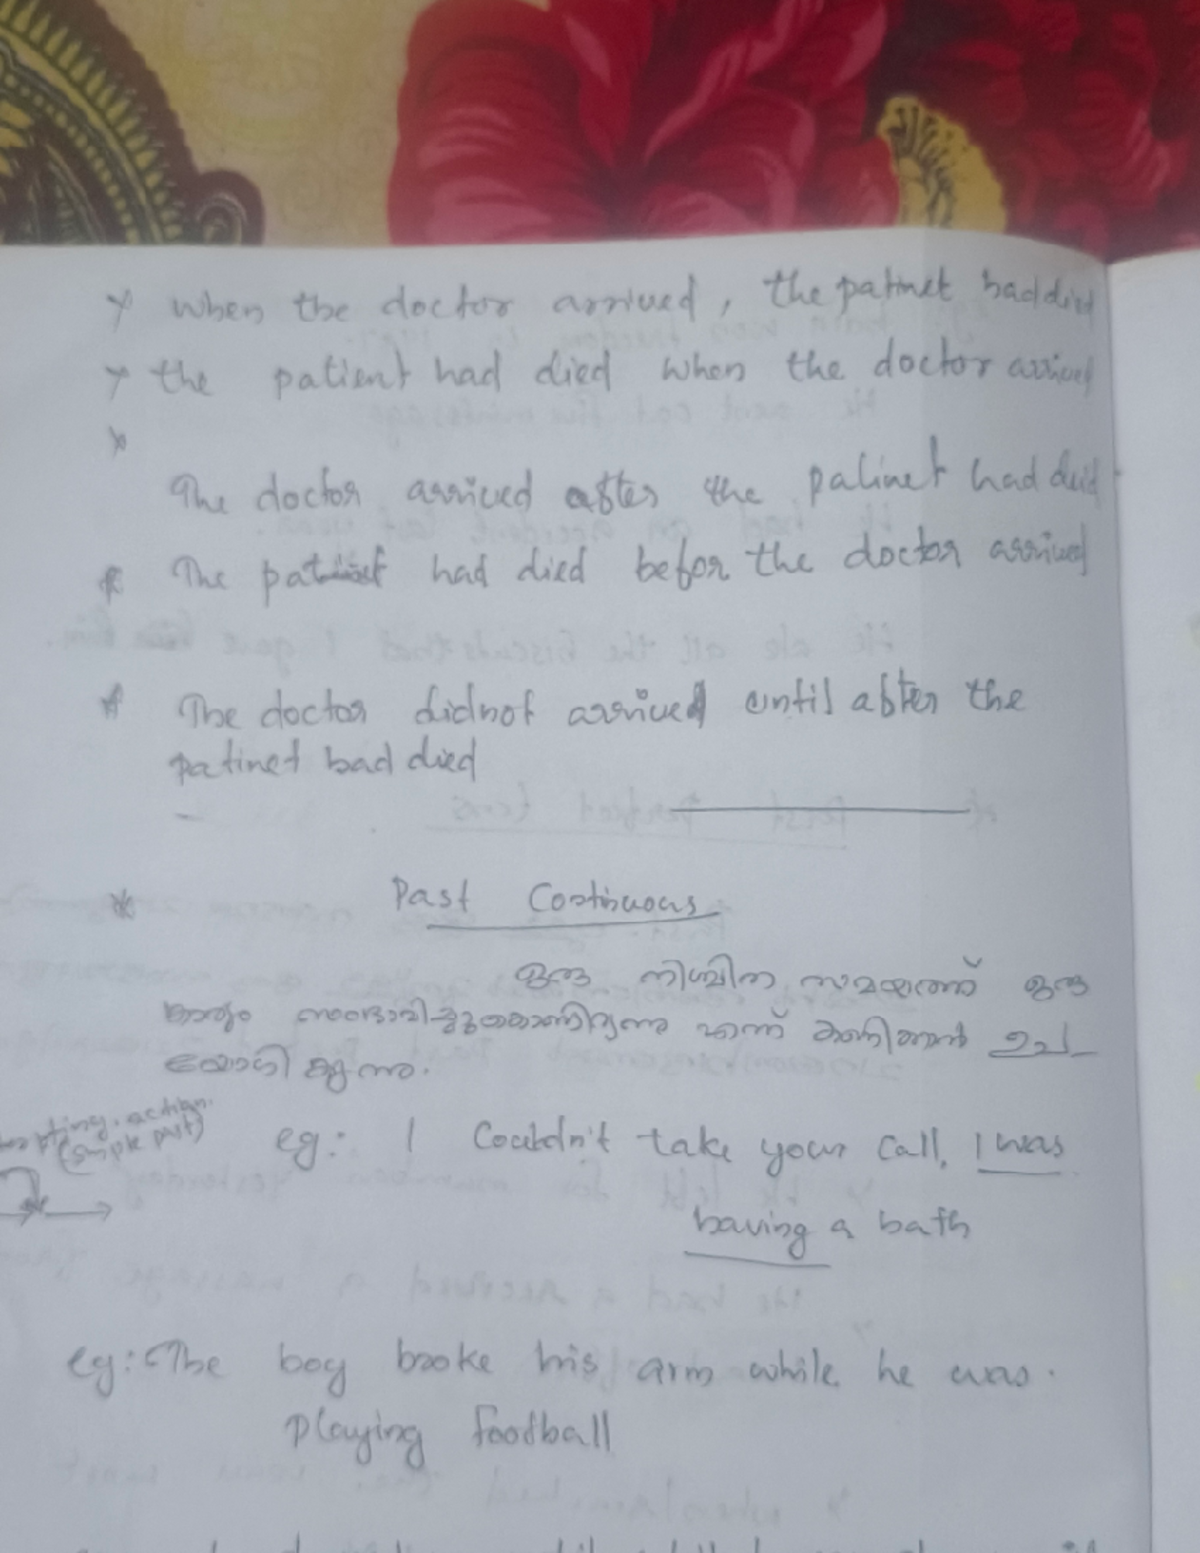 when the doctor arrived, the patinet had died
the patient had died when the doctor arrived
The doctor arrived after the patinet had died
The patinet had died befor the doctor arrived
The doctor didnot arrived until after the
patinet had died
Past Continuous
ഒരു നിശ്ചിത സമയത്ത് ഒരു
കാര്യം സംഭവിച്ചുകൊണ്ടിരുന്നു എന്ന് കാണിക്കാൻ ഉപ
യോഗിക്കുന്നു.
action.
(simple past)
eg: I Couldn't take your call, I was
having a bath
eg: The boy broke his arm while he was.
playing football